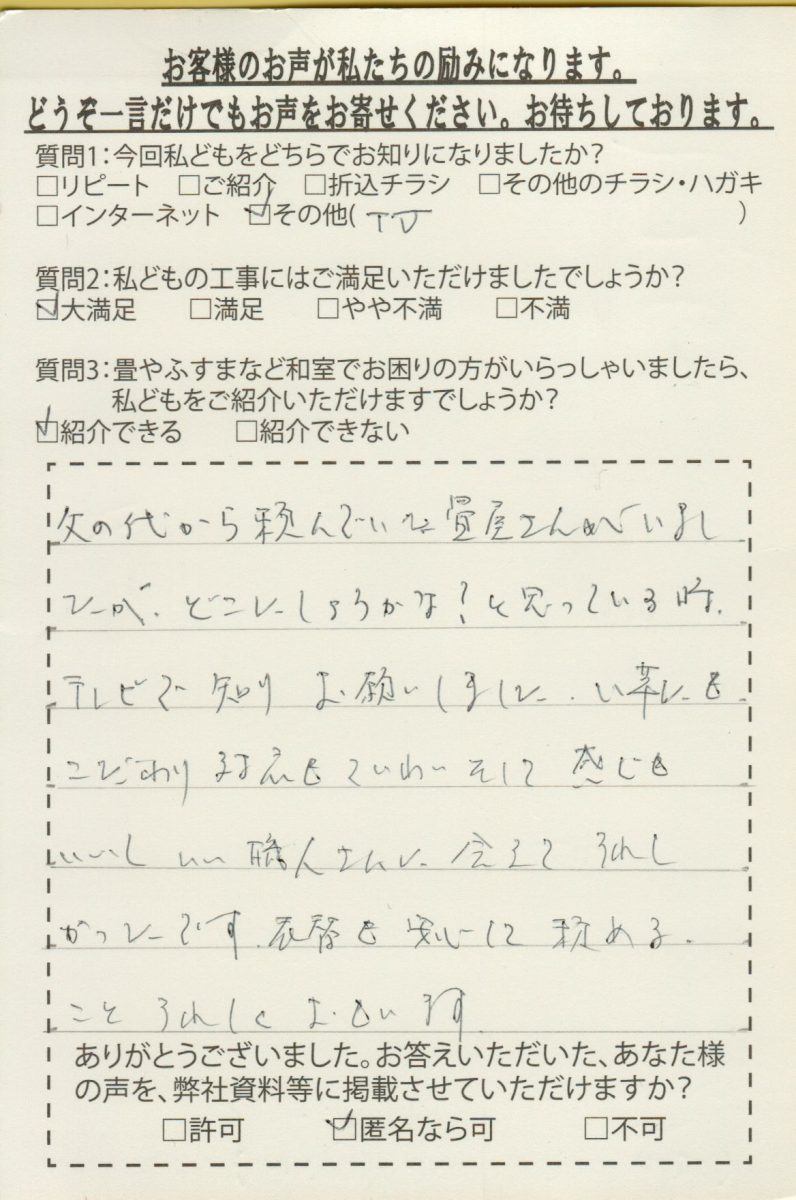 お客様のお声が私たちの励みになります。
どうぞ一言だけでもお声をお寄せください。お待ちしております。
質問1:今回私どもをどちらでお知りになりましたか?
□リピート □ご紹介 □折込チラシ □その他のチラシ・ハガキ
□インターネット ☑その他( TV )
質問2:私どもの工事にはご満足いただけましたでしょうか?
☑大満足 □満足 □やや不満 □不満
質問3:畳やふすまなど和室でお困りの方がいらっしゃいましたら、
私どもをご紹介いただけますでしょうか?
☑紹介できる □紹介できない
父の代から頼んでいた畳屋さんがいまし
たが、どこにしようかな?と思っている時、
テレビで知り お願いしました。い草にも
こだわり 対応も ていねい そして 感じも
いいし いい職人さんに 会えて うれし
かったです。表替も 安心して 頼める。
こと うれしく おもいます。
ありがとうございました。お答えいただいた、あなた様
の声を、弊社資料等に掲載させていただけますか?
□許可 ☑匿名なら可 □不可